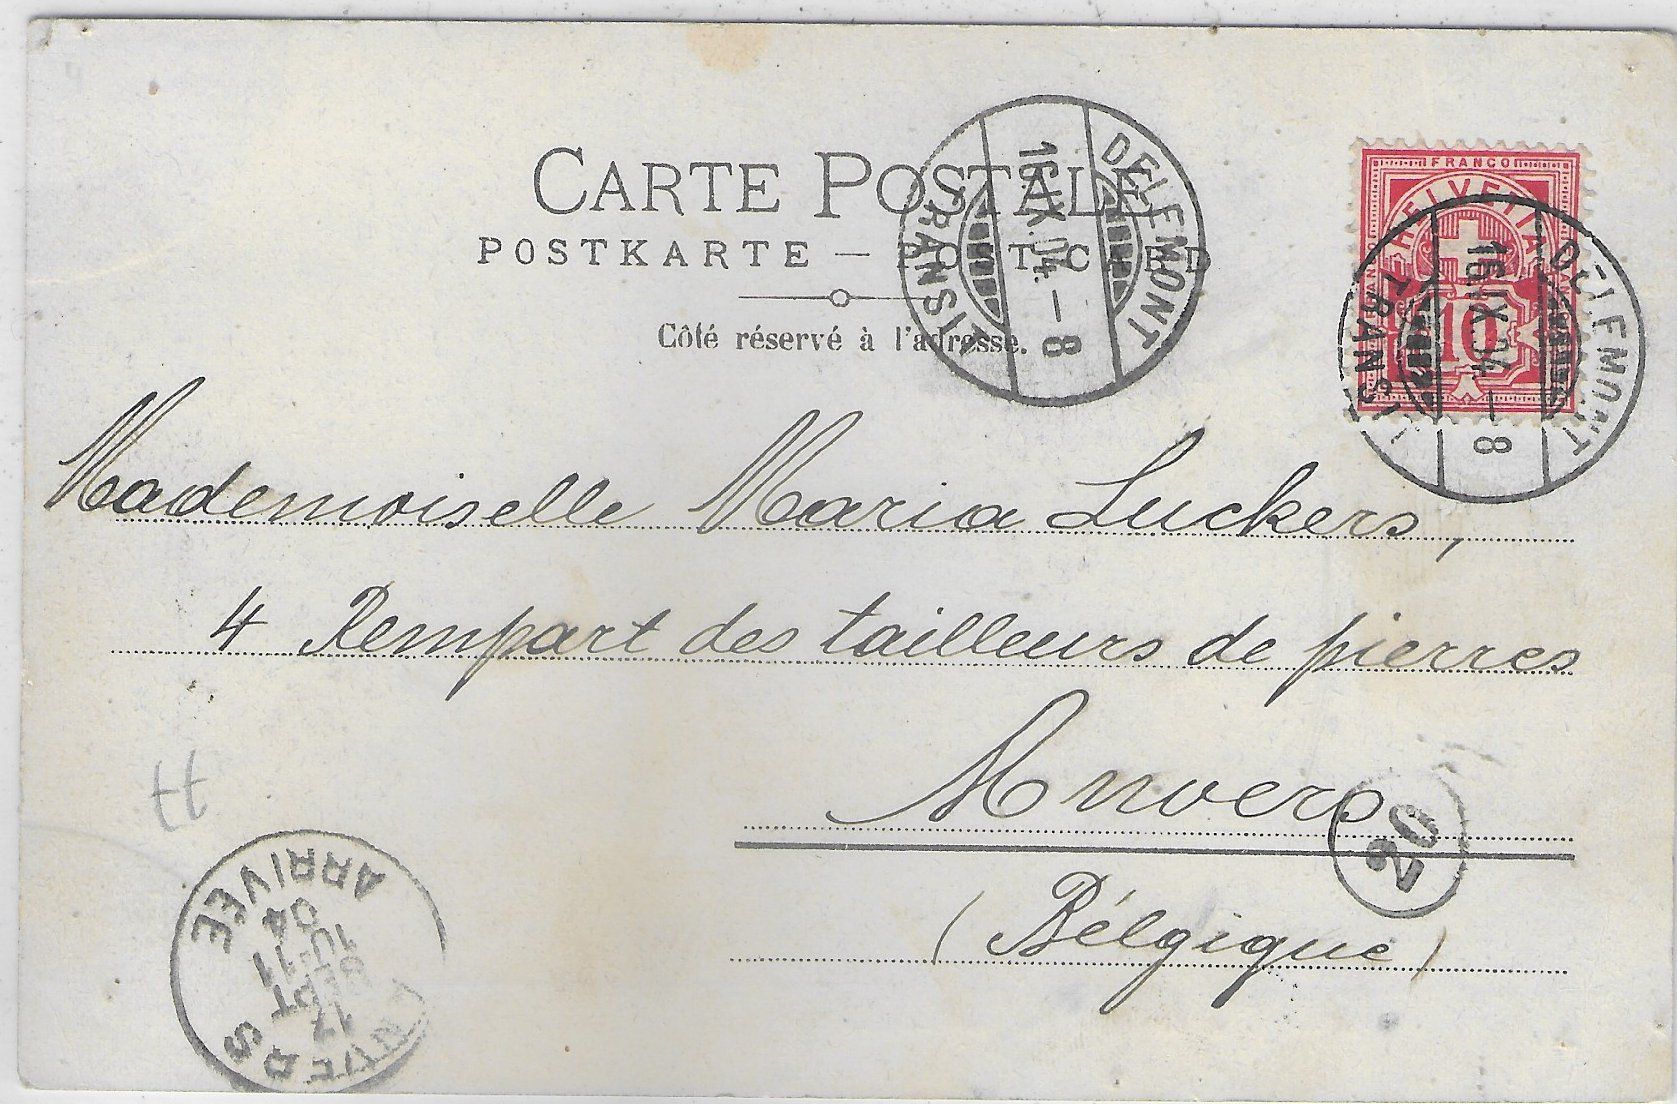 CARTE POSTALE
POSTKARTE — POSTCARD
Côté réservé à l'adresse.
DELEMONT
16.IX.04.—8
TRANSIT
FRANCO
HELVETIA
10
DELEMONT
16.IX.04.—8
TRANSIT
Mademoiselle Maria Luckers,
4 Rempart des tailleurs de pierres
Anvers
20
(Bélgique)
H
ANVERS
17
SEPT
10-11
04
ARRIVÉE